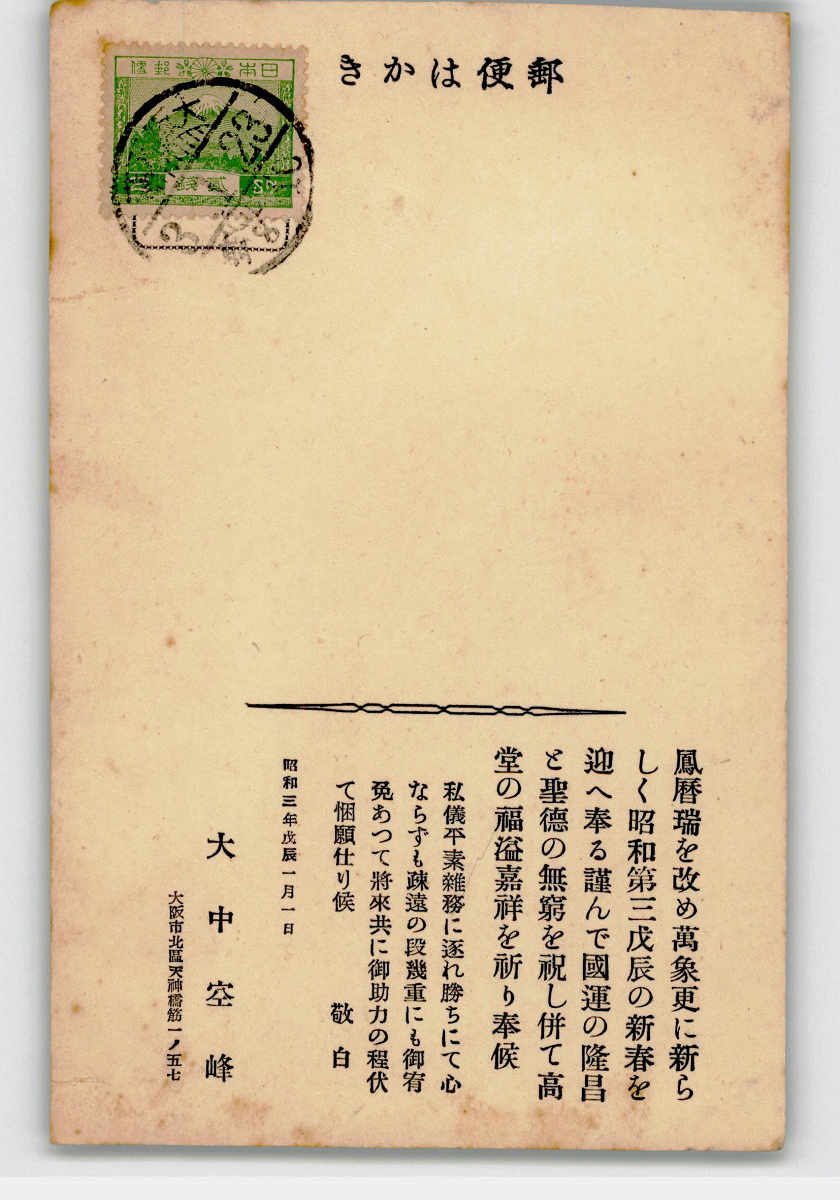 郵便はかき
日本郵便
貳錢
鳳曆瑞を改め萬象更に新ら
しく昭和第三戊辰の新春を
迎へ奉る謹んで國運の隆昌
と聖德の無窮を祝し併て高
堂の福溢嘉祥を祈り奉候
私儀平素雜務に逐れ勝ちにて心
ならずも疎遠の段幾重にも御宥
免あつて將來共に御助力の程伏
て悃願仕り候 敬白
昭和三年戊辰一月一日
大中空峰
大阪市北區天神橋筋一ノ五七